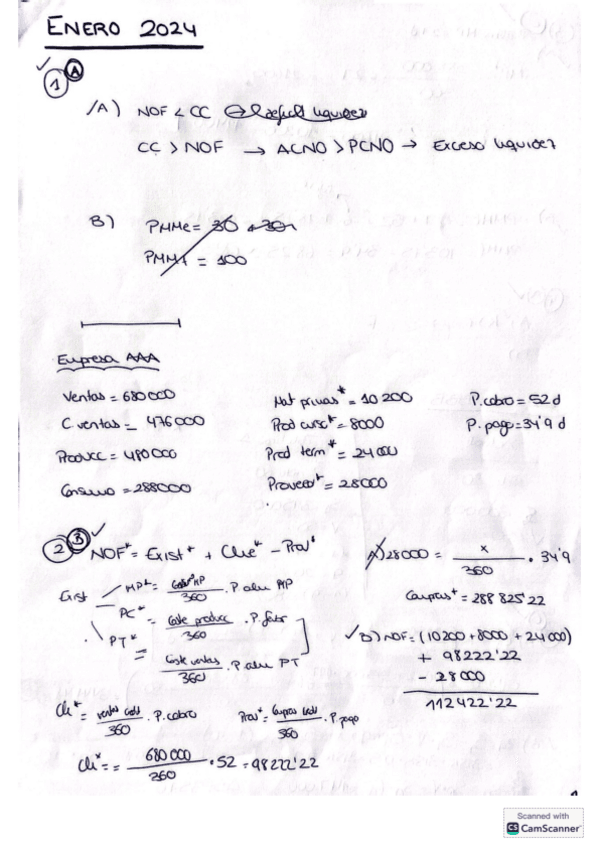 ENERO 2024
✓
1 A
/A) NOF < CC → deficit liquidez
CC > NOF → ACNO > PCNO → Exceso liquidez
B) PMMe = 30
PMMf = 100
Empresa AAA
Ventas = 680000
C. ventas = 476000
Producc = 480000
Consumo = 288000
Mat primas* = 10200
Prod curso* = 8000
Prod term* = 24000
Proveed* = 28000
P. cobro = 52 d
P. pago = 34'9 d
2 3 ✓
NOF* = Exist* + Clie* - Prov*
Exist
MP* = /360 . P. alm MP
PC* = Coste producc/360 . P. fabr
PT* = Coste ventas/360 . P alm PT
Cli* = ventas /360 . P. cobro
Prov* = Compras /360 . P. pago
Cli* = = 680 000/360 . 52 = 98222'22
A) 28000 = x/360 . 34'9
Compras* = 288 825'22
✓ B) NOF = (10200 + 8000 + 24000)
+ 98222'22
- 28000
112422'22
Scanned with
CS CamScanner